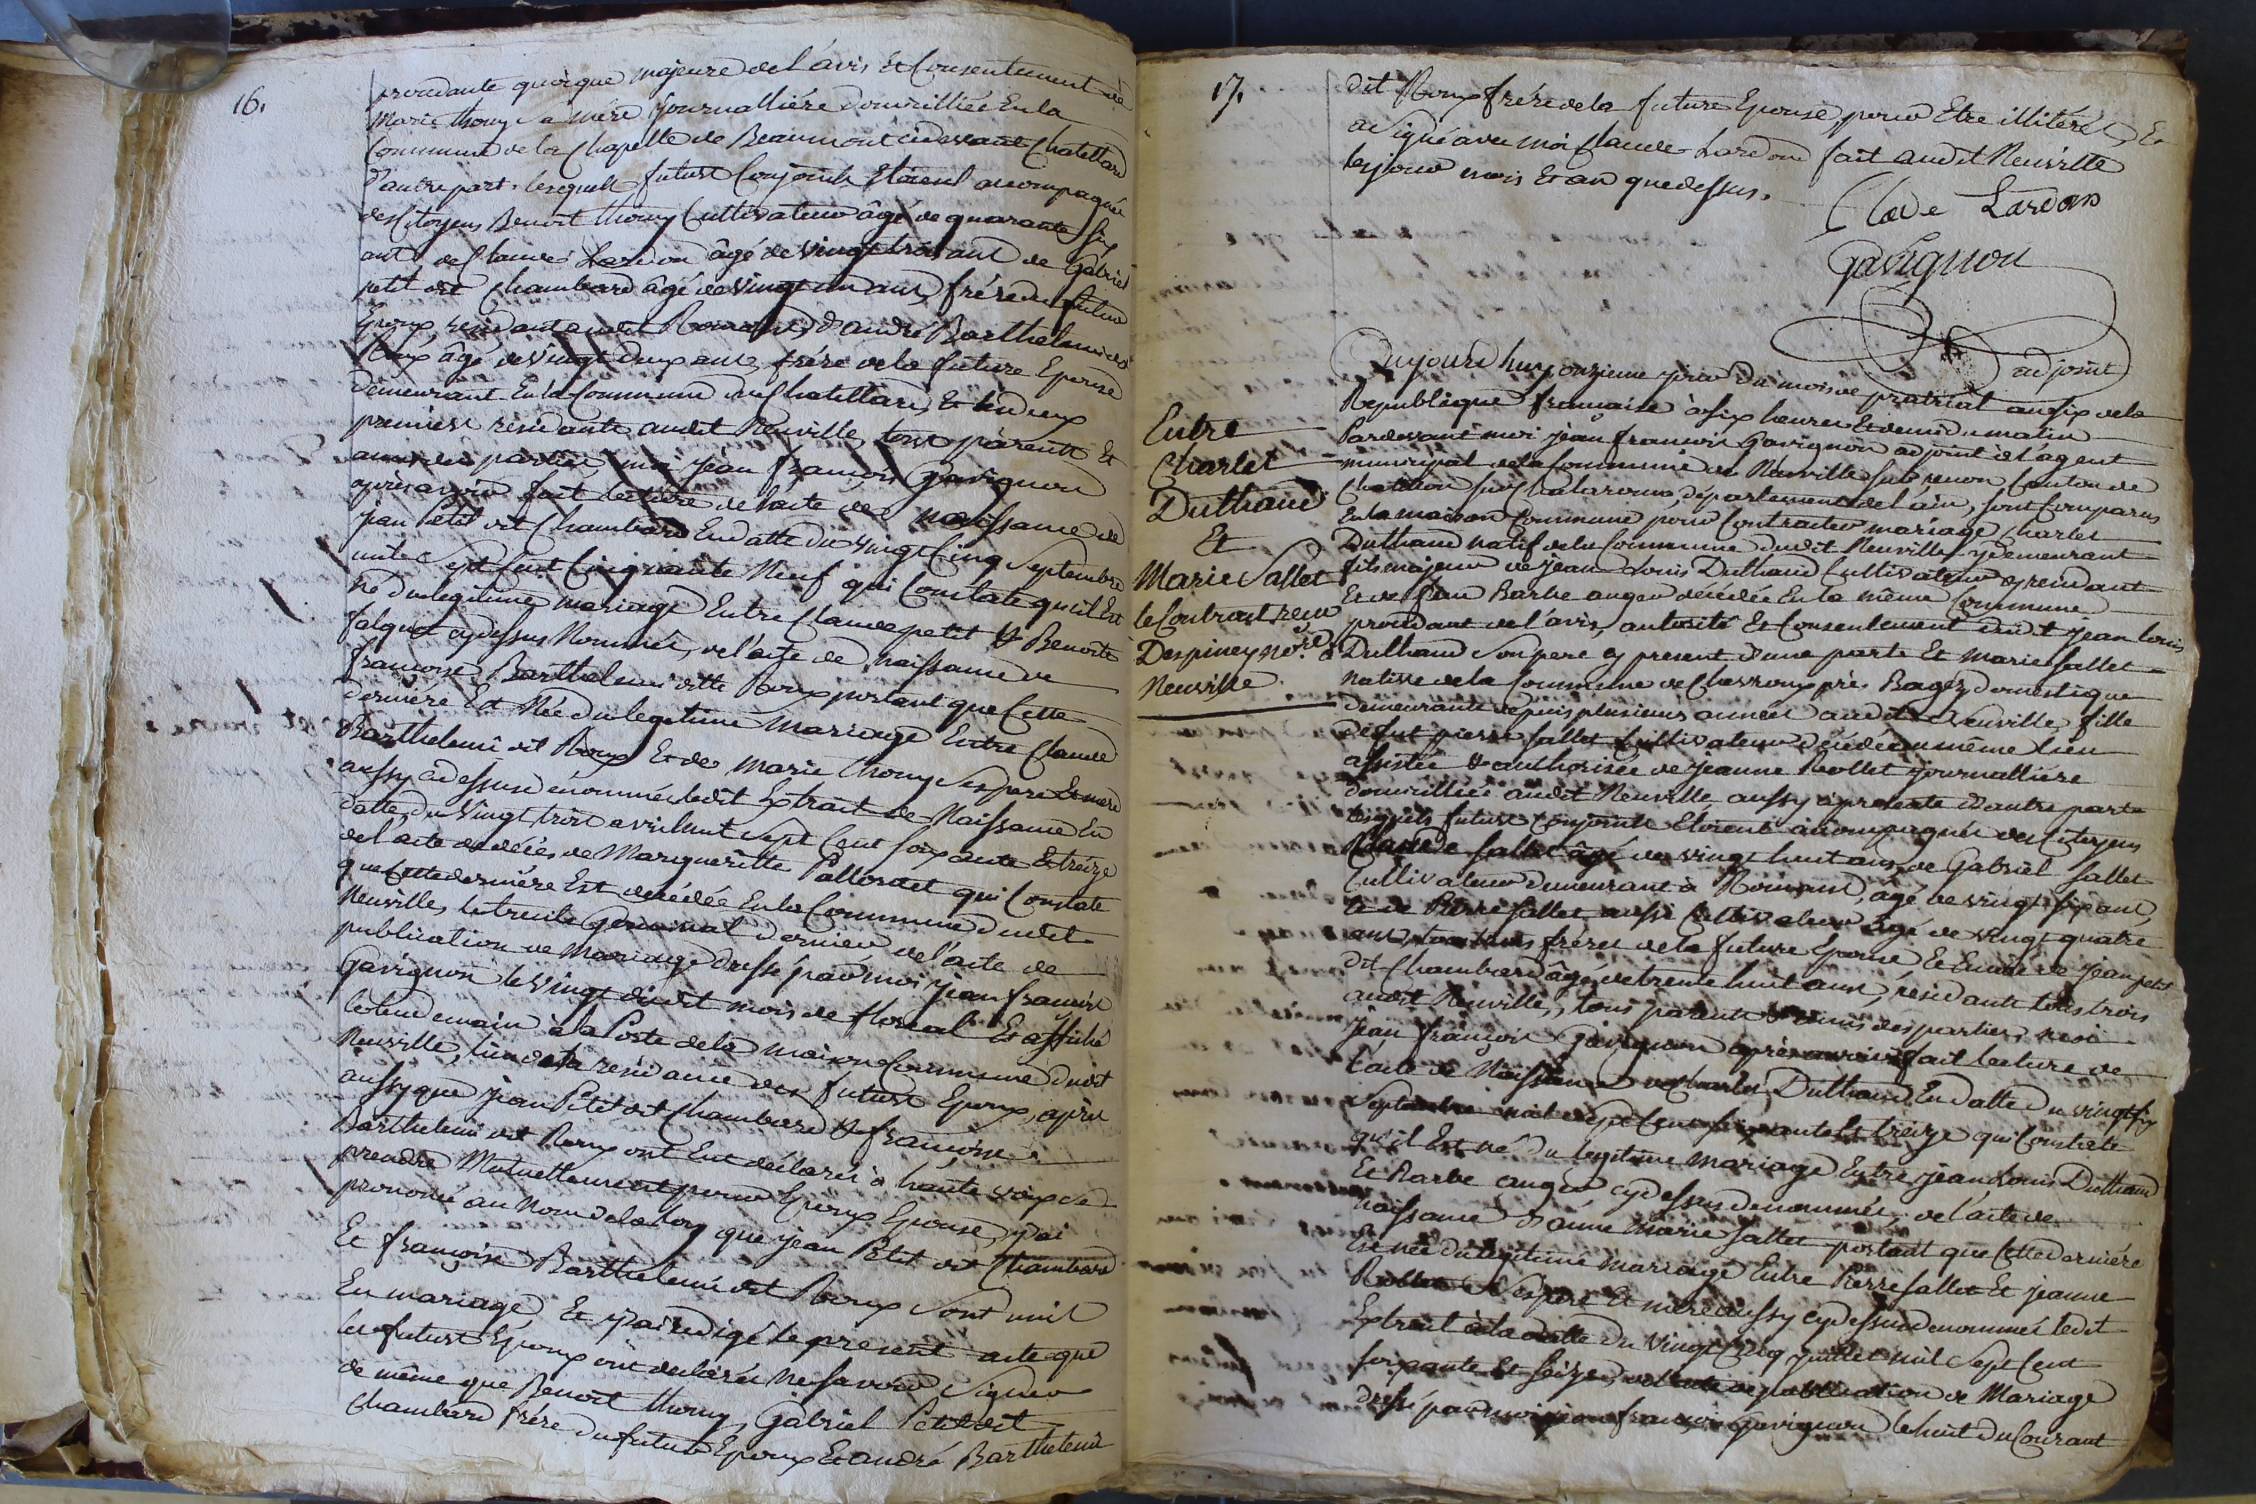 16.
procedante quoique majeure de l'avis Et Consentement de
Marie thomy sa mére journalliére domicilliée En la
Commune de la Chapelle de Beaumont cidevant Chatellard
d'autre part. lesquels futurs Conjoints Etoient accompagnés
des Citoyens Benoit thomy Cultivateur âgé de quarante six
ans de Claude Lardon âgé de vingt trois ans de Gabriel
petit dit Chambard âgé de vingt un ans frére du futur
Epoux, residant audit Romans, d'andré Barthelemi dit
Roux âgé de vingt deux ans frére de la future Epouse
demeurant En la Commune du Chatellard, Et les deux
premiers résidants audit Neuville, tous parents Et
amis des parties moi jean françois Gavignon
après avoir fait lecture de l'acte de naissance de
jean Petit dit Chambard En datte du vingt Cinq Septembre
mile Sept Cent Cinquante Neuf qui Constate qu'il Est
né du legitime mariage Entre Claude petit & Benoite
falque cydessus Nommés, de l'acte de naissance de
francoise Barthelemi ditte Roux portant que Cette
derniére Est Née du legitime mariage Entre Claude
Barthelemi dit Roux Et de Marie thomy Ses pere Et mere
aussy cidessus dénommés ledit Extrait de Naissance En
datte du Vingt trois avril mil sept Cent soixante Et treize
de l'acte de décés de Marguéritte Pallordet qui Constate
que Cette derniére Est decédée En la Commune dudit
Neuville, le trente Germinal dernier de l'acte de
publication de Mariage dressé par moi jean francois
Gavignon le vingt dudit mois de floreal Et affiché
le lendemain à la Porte de la maison Commune dudit
Neuville, lieu de la residance des futurs Epoux, après
aussy que jean Petit dit Chambard & francoise
Barthelemi dit Roux ont Eut déclarés à haute voix se
prendre Mutuellement pour Epoux Epouse, j'ai
prononcé au Nom de la loy que jean Petit dit Chambard
Et françoise Barthelemi dit Roux Sont unis
En mariage Et j'ai redigé le present acte que
les futurs Epoux ont declarés ne savoir Signer
de même que Benoit thomy, Gabriel Petit dit
Chambard frére du futur Epoux Et andré Barthelemi
17.
dit Roux frére de la future Epouse, pour Etre illitérés, Et
a Signé avec moi Claude Lardon fait audit Neuville
les jour mois Et an que dessus.
Clade Lardon
Gavignon
adjoint
Entre
Charles
Duthaud
Et
Marie Sallet
le Contrat recu
Despiney nore. à
Neuville.
Aujourd'huy onzieme jour du mois de prairial an six de la
Republique francaise à six heures Et demi du matin
Pardevant moi jean francois Gavignon adjoint à l'agent
municipal de la Commune de Neuville sur renon Canton de
Chatillon sur Chalaronne, département de l'ain, Sont Comparus
En la maison Commune pour Contracter mariage Charles
Duthaud natif de la Commune dudit Neuville y demeurant
fils majeur de jean Louis Duthaud Cultivateur y residant
Et de feue Barbe auger decédée En la même Commune
procedant de l'avis, autorité Et Consentement dudit jean Louis
Duthaud Son pere cy present d'une part Et Marie Sallet
native de la Commune de Chevroux près Bagé, domestique
demeurante depuis plusieurs années audit Neuville, fille
défut pierre Sallet Cultivateur décédé au même lieu
assistée & authorisée de jeanne Rollet journalliére
domicilliée audit Neuville aussy cy presente d'autre part
lesquels futurs Conjoints Etoient accompagnés des Citoyens
Claude Sallet âgé de vingt huit ans, de Gabriel Sallet
Cultivateur demeurant à Romans, âgé de vingt six ans,
& de Pierre Sallet, aussi Cultivateur âgé de vingt quatre
ans, tous trois fréres de la future Epouse Et Encore de jean petit
dit Chambard âgé de trente huit ans, résidants tous trois
audit Neuville, tous parents & amis des parties, moi
jean françois Gavignon après avoir fait lecture de
l'acte de Naissance de Charles Duthaud, En datte du vingt six
Septembre mil sept Cent soixante Et treize qui Constate
qu'il Est né du legitime mariage Entre jean Louis Duthaud
Et Barbe auger cydessus denommés, de l'acte de
Naissance d'anne Marie Sallet portant que Cette derniére
Est née du legitime mariage Entre Pierre Sallet Et jeanne
Rollet Ses pere Et mere aussy cydessus denommés ledit
Extrait à la datte du vingt Cinq juillet mil Sept Cent
soixante Et Seize, de l'acte de publication de Mariage
dressé par moi jean francois Gavignon le huit du Courant